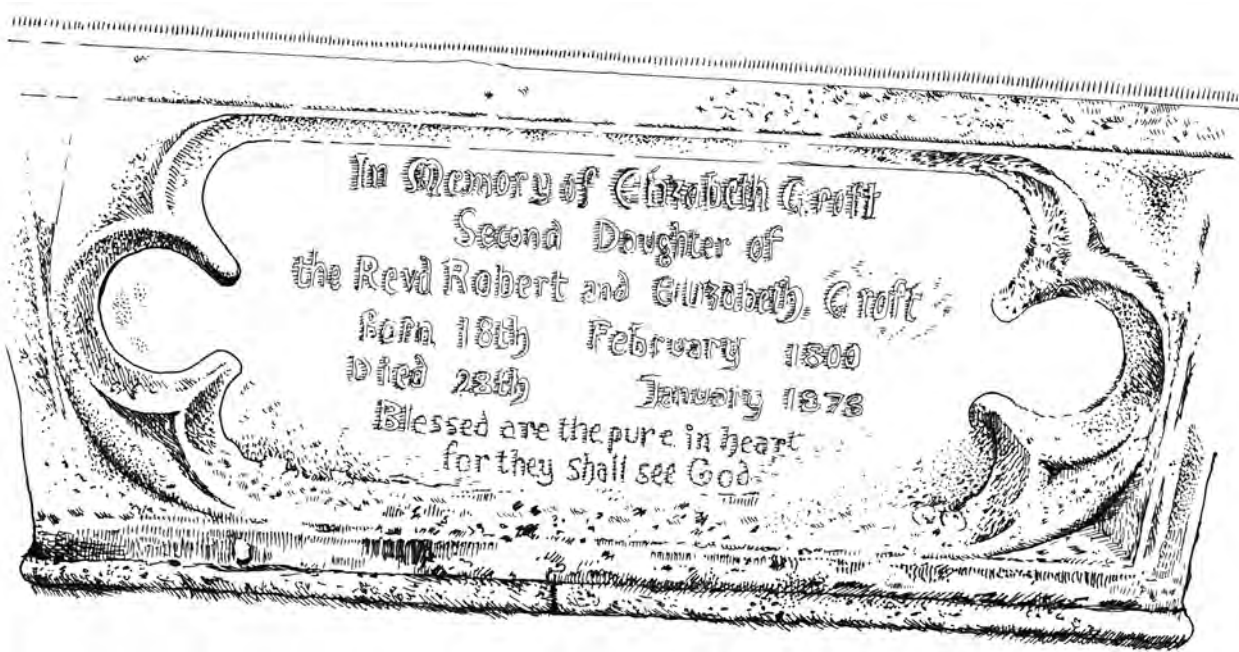 In Memory of Elizabeth Croft
Second Daughter of
the Revd Robert and Elizabeth Croft
Born 18th February 1800
Died 28th January 1873
Blessed are the pure in heart
for they shall see God